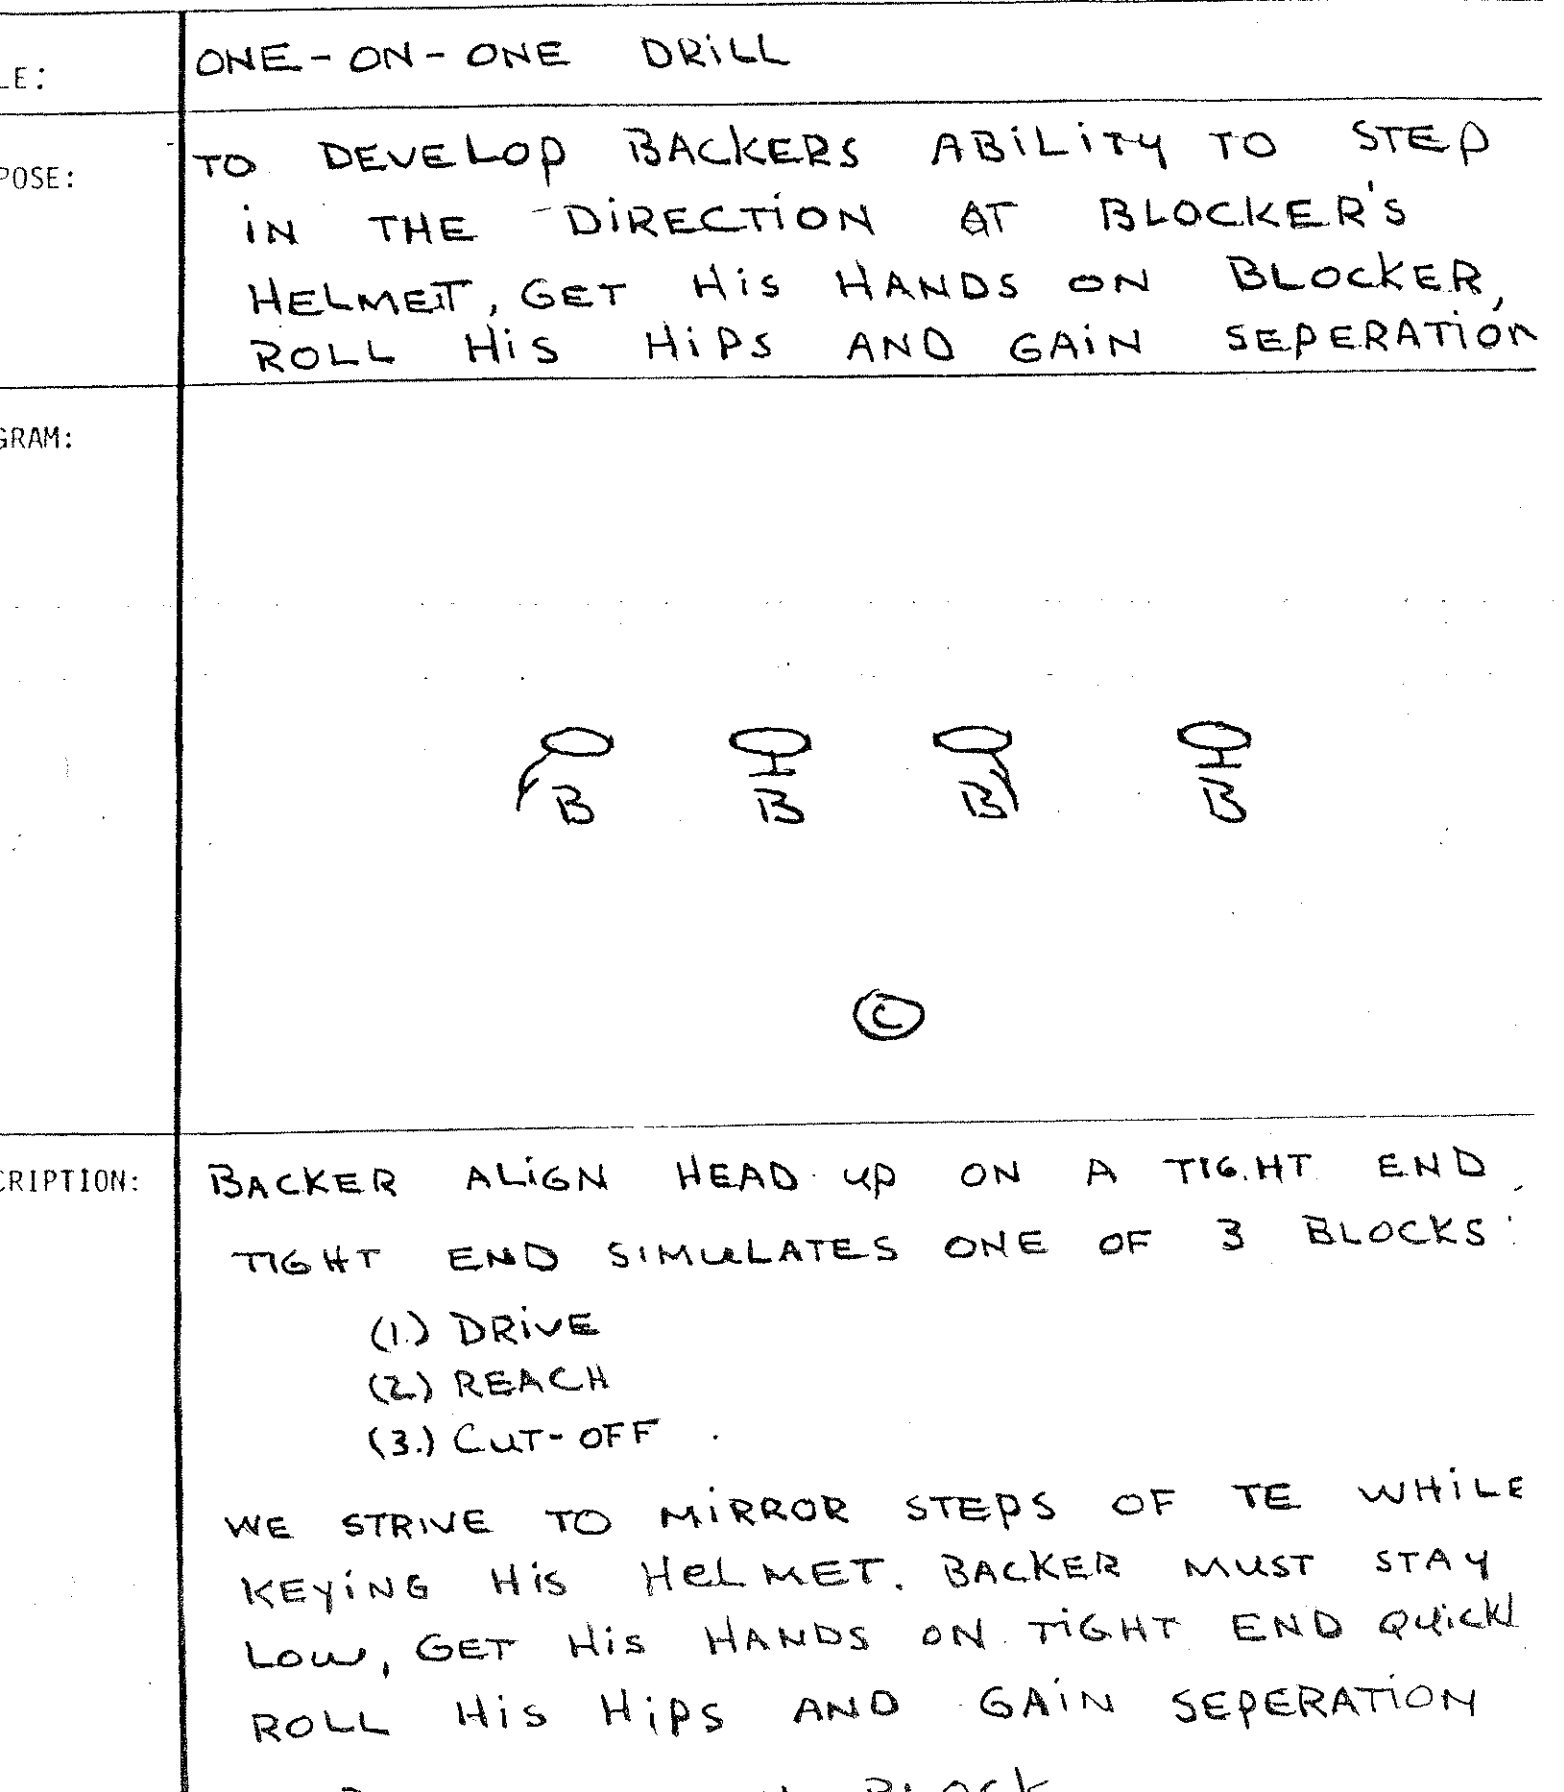 LE: ONE-ON-ONE DRILL
POSE: TO DEVELOP BACKERS ABILITY TO STEP
IN THE DIRECTION AT BLOCKER'S
HELMET, GET HIS HANDS ON BLOCKER,
ROLL HIS HIPS AND GAIN SEPERATION
GRAM:
B B B B
C
CRIPTION: BACKER ALIGN HEAD UP ON A TIGHT END.
TIGHT END SIMULATES ONE OF 3 BLOCKS:
(1.) DRIVE
(2.) REACH
(3.) CUT-OFF.
WE STRIVE TO MIRROR STEPS OF TE WHILE
KEYING HIS HELMET. BACKER MUST STAY
LOW, GET HIS HANDS ON TIGHT END QUICKL
ROLL HIS HIPS AND GAIN SEPERATION
BLOCK